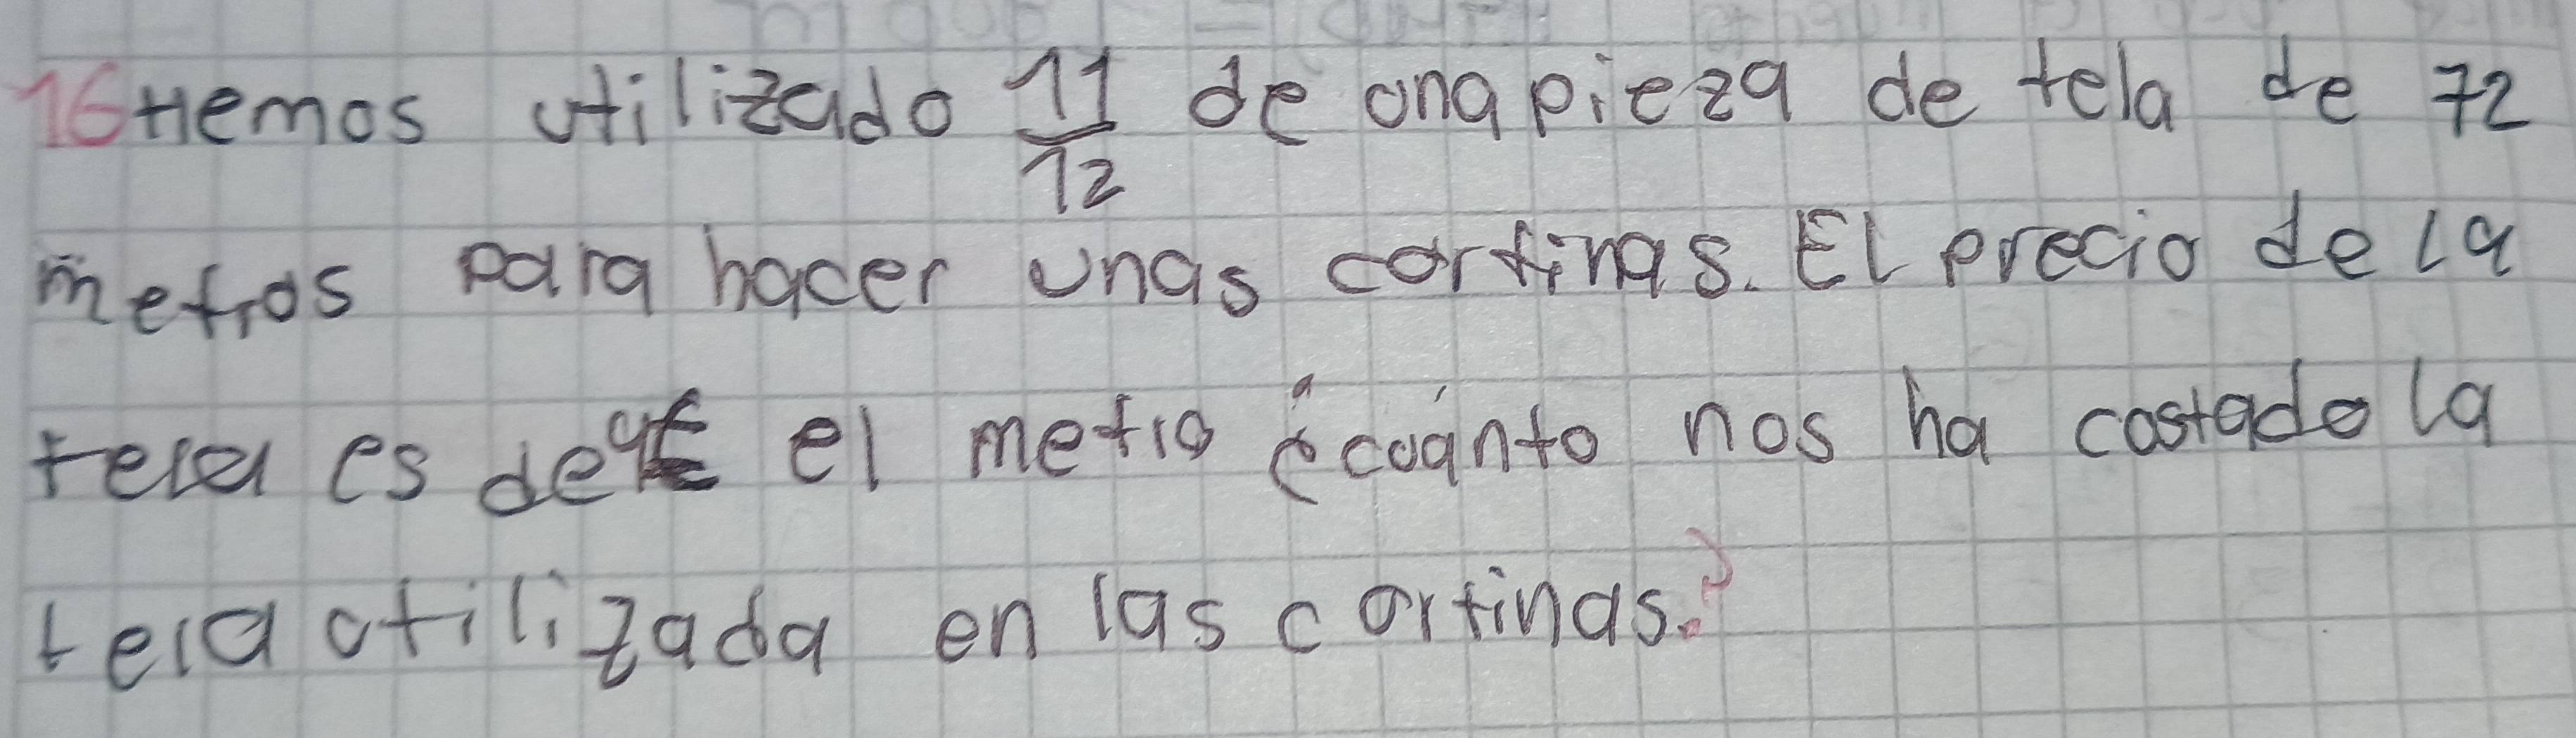 16 Hemos utilizado 11/12 de una pieza de tela de 72
metros para hacer unas cortinas. El precio de la
tela es de el metro ¿cuánto nos ha costado la
tela utilizada en las cortinas.?